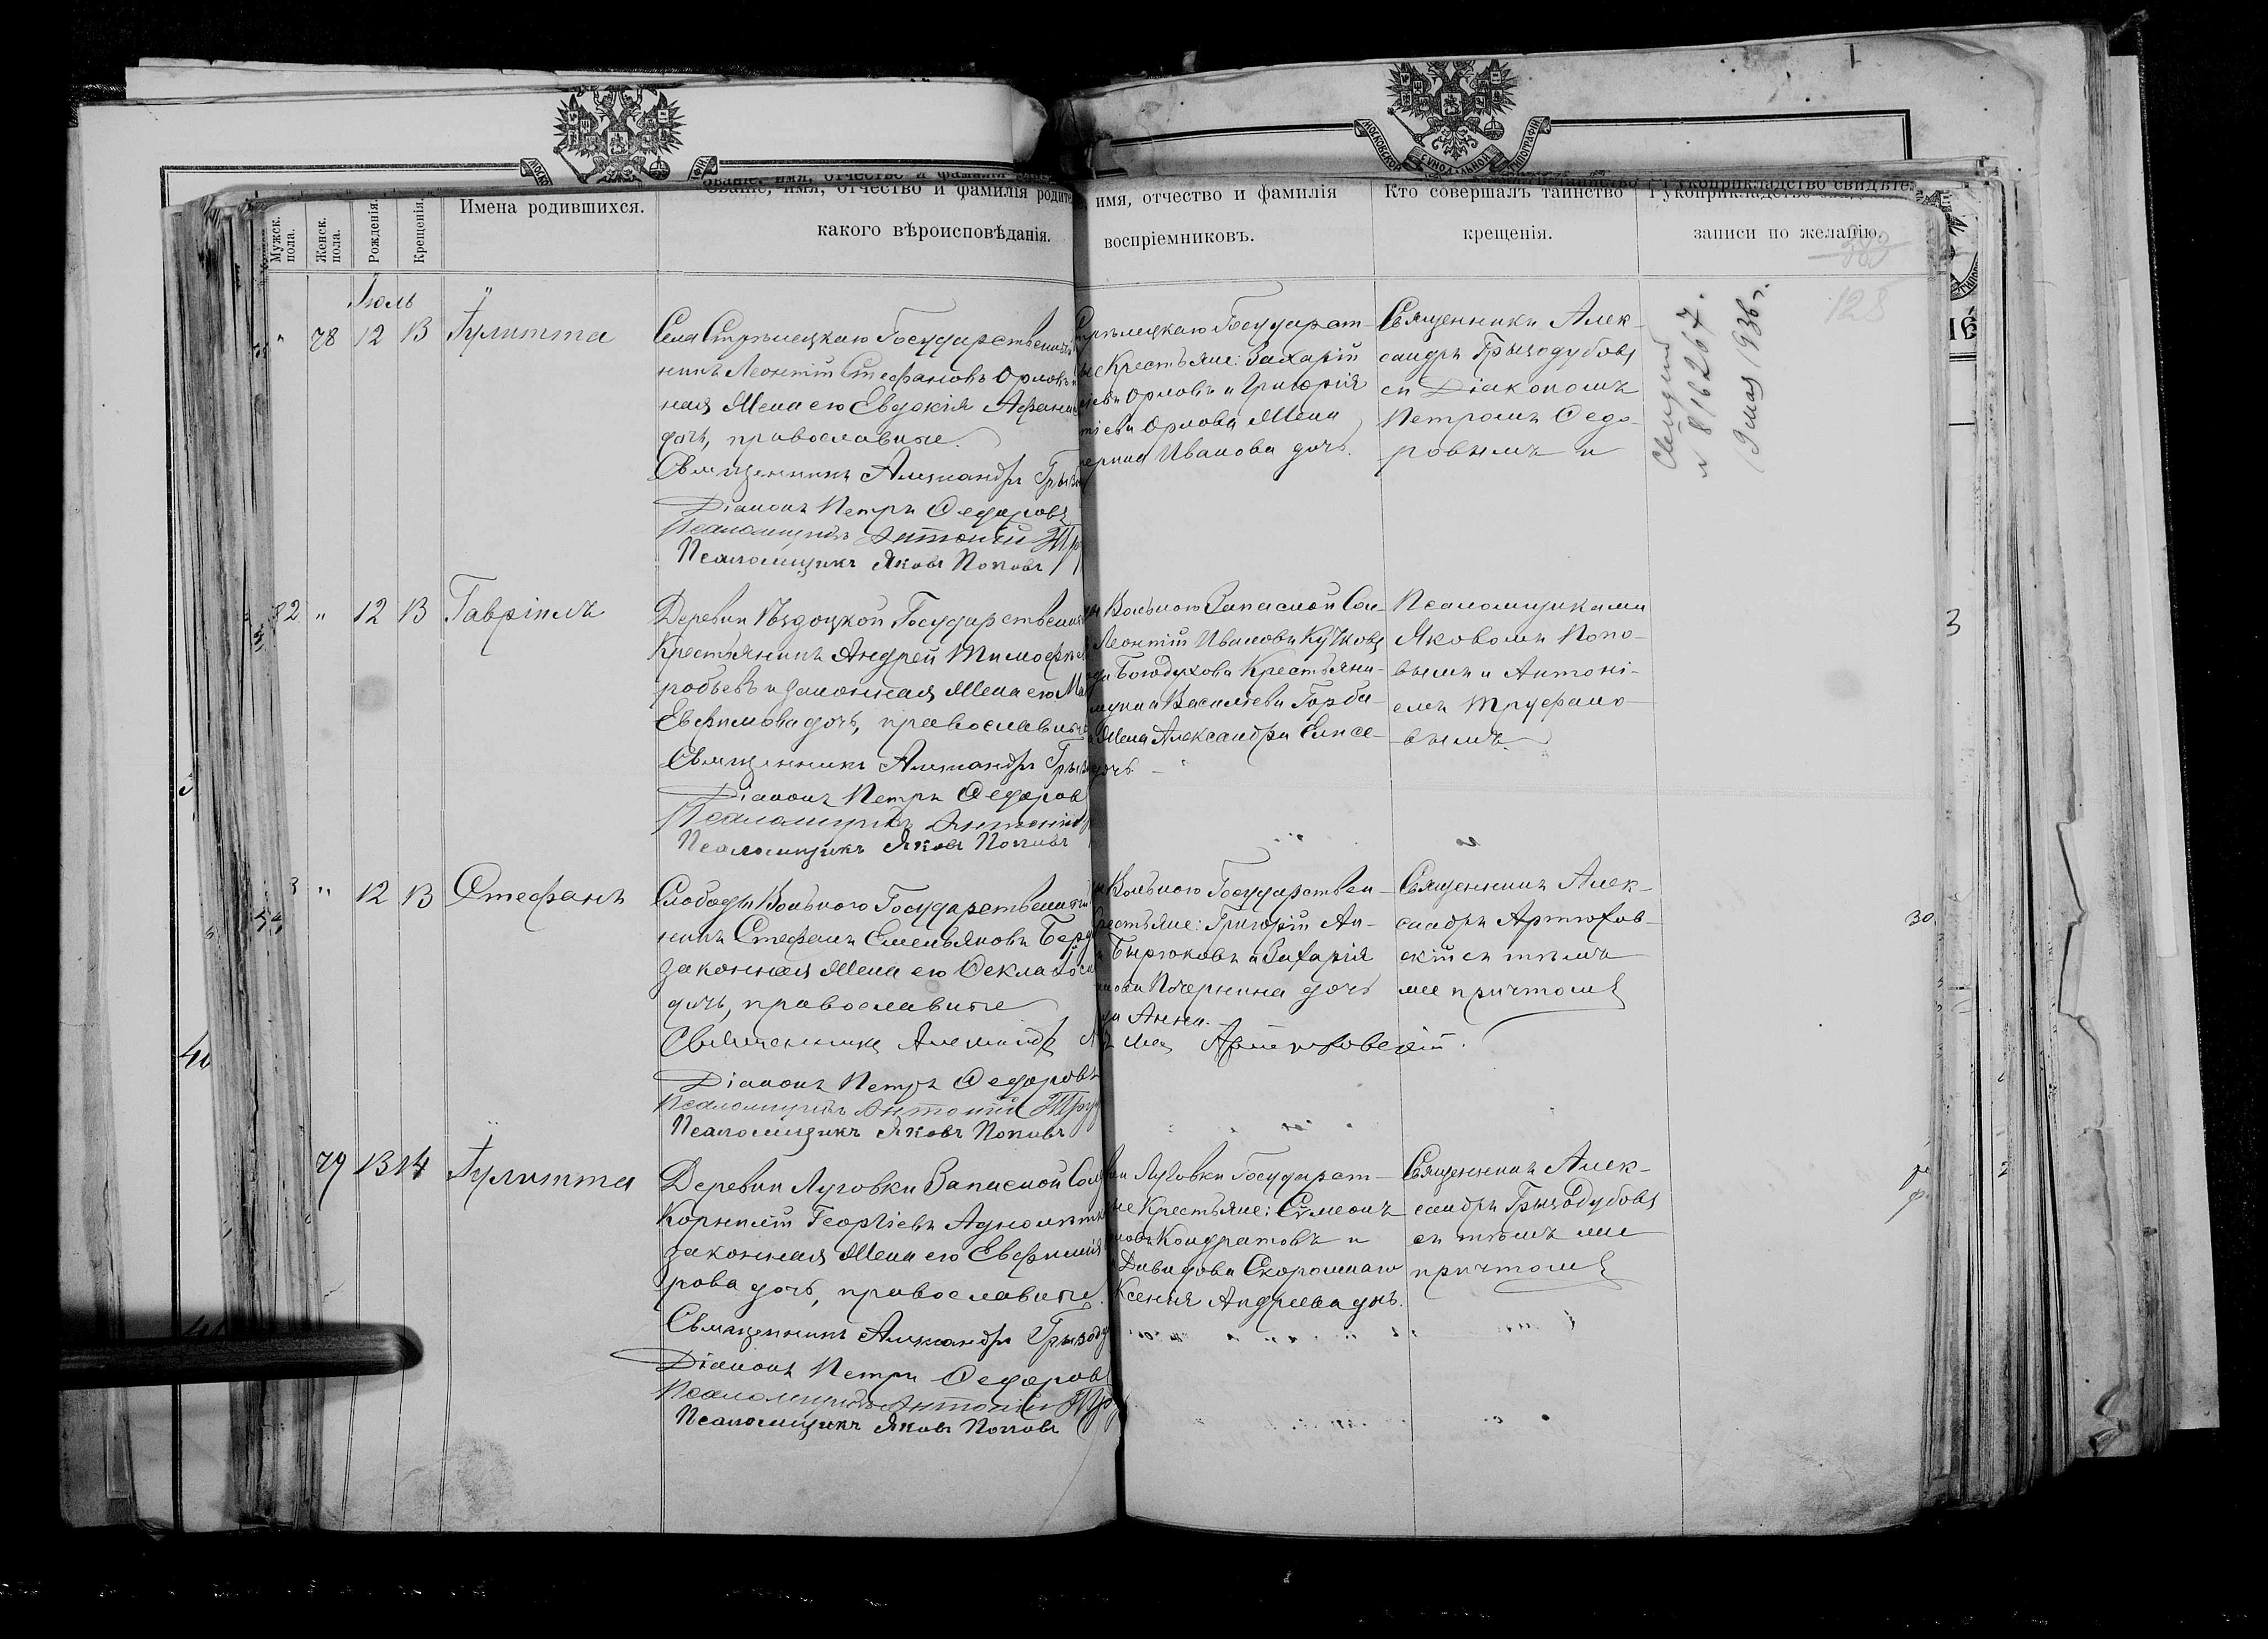 МОСКОВСКОЙ СѴНОДАЛЬНОЙ ТИПОГРАФІИ
Мужск. пола.
Женск. пола.
Рожденія.
Крещенія.
Имена родившихся.
Званіе, имя, отчество и фамилія родите
какого вѣроисповѣданія.
имя, отчество и фамилія
воспріемниковъ.
Кто совершалъ таинство
крещенія.
Рукоприкладство
записи по желанію.
383
128
Іюль
" 78 12 13 Іулитта
Села Стрѣлецкаго Государственный
нинъ Леонтій Стефановъ Орловъ и
ная жена его Евдокія Афана
дочь, православные.
Священникъ Александръ Грызо
Діаконъ Петръ Ѳедоровъ
Псаломщикъ Антоній Тр
Псаломщикъ Яковъ Поповъ
Стрѣлецкаго Государст-
ые Крестьяне: Захарій
сіевъ Орловъ и Григорія
тіева Орлова жена
терина Иванова дочь.
Священникъ Алек-
сандръ Грызодубовъ
съ Діакономъ
Петромъ Ѳедо-
ровымъ и
№ 816267.
19 мая 1936 г.
82 " 12 13 Гавріилъ
Деревни Ѣздоцкой Государственный
Крестьянинъ Андрей Тимофѣе
робьевъ и законная жена его Ма
Евфимова дочь, православные
Священникъ Александръ Грызо
Діаконъ Петръ Ѳедоров
Псаломщикъ Антоній
Псаломщикъ Яковъ Поповъ
Вольного Запасной Сол-
Леонтій Ивановъ Кучковъ
да Богодухова Крестьяни-
Васильева Горба-
жена Александра Елисе-
дочь.
Псаломщиками
Яковомъ Попо-
вымъ и Антоні-
емъ Труфано-
вымъ.
3 " 12 13 Стефанъ
Слободы Вольного Государственный
нинъ Стефанъ Емельяновъ Бѣ
законная жена его Ѳекла
дочь, православные
Священникъ Александръ
Діаконъ Петръ Ѳедоровъ
Псаломщикъ Антоній Тру
Псаломщикъ Яковъ Поповъ
Вольного Государствен-
Крестьяне: Григорій Ан-
Бирюковъ и Захарія
дочь
Анна.
Артюховскій.
Священникъ Алек-
сандръ Артюхов-
скій съ тѣмъ
же причтомъ
79 13 14 Іулитта
Деревни Луговки Запасной Сол
Корнилій Георгіевъ
законная жена его Евфимія
рова дочь, православные.
Священникъ Александръ Грызоду
Діаконъ Петръ Ѳедоровъ
Псаломщикъ Антоній Тру
Псаломщикъ Яковъ Поповъ
ни Луговки Государст-
ные Крестьяне: Сѵмеонъ
новъ Кондратовъ и
Давидова Скороднаго
Ксенія Андреева дочь.
Священникъ Алек-
сандръ Грызодубовъ
съ тѣмъ же
причтомъ
3
30